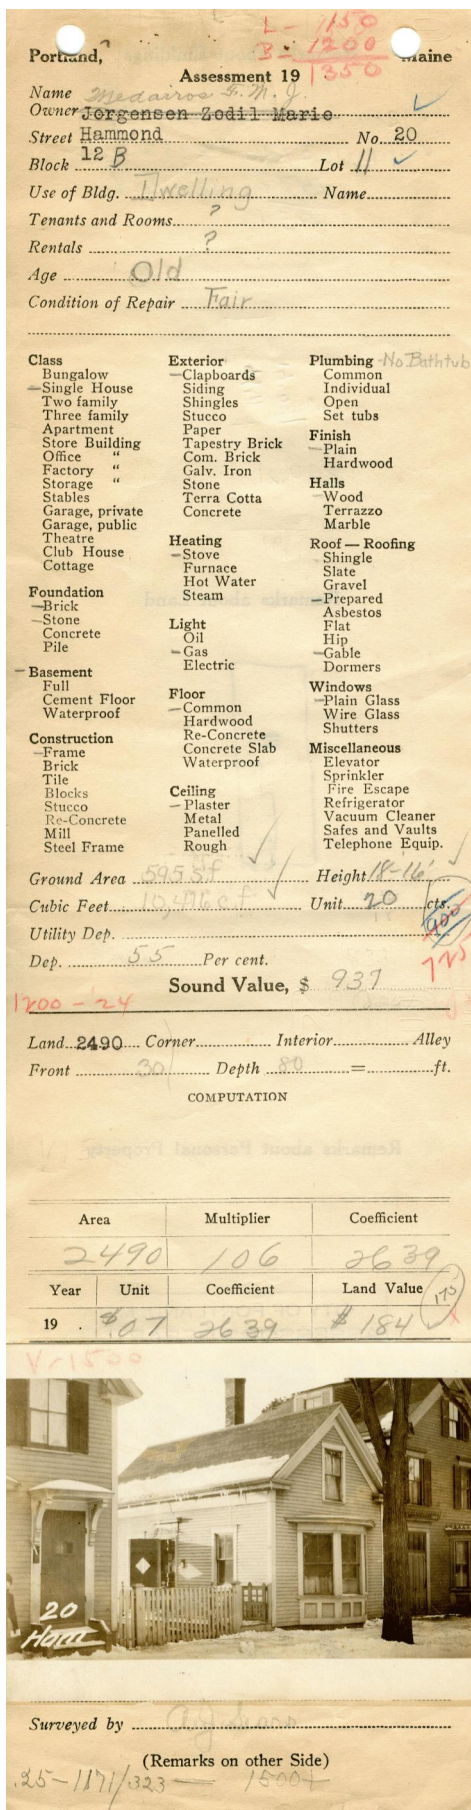 L - 1150
B - 1200
1350
Portland, Maine
Assessment 19
Name Medairos G. M. J.
Owner Jorgensen Zodil Marie
Street Hammond No. 20
Block 12 B Lot 11
Use of Bldg. Dwelling Name
Tenants and Rooms ?
Rentals ?
Age Old
Condition of Repair Fair
Class
Bungalow
Single House
Two family
Three family
Apartment
Store Building
Office "
Factory "
Storage "
Stables
Garage, private
Garage, public
Theatre
Club House
Cottage
Foundation
Brick
Stone
Concrete
Pile
Basement
Full
Cement Floor
Waterproof
Construction
Frame
Brick
Tile
Blocks
Stucco
Re-Concrete
Mill
Steel Frame
Exterior
Clapboards
Siding
Shingles
Stucco
Paper
Tapestry Brick
Com. Brick
Galv. Iron
Stone
Terra Cotta
Concrete
Heating
Stove
Furnace
Hot Water
Steam
Light
Oil
Gas
Electric
Floor
Common
Hardwood
Re-Concrete
Concrete Slab
Waterproof
Ceiling
Plaster
Metal
Panelled
Rough
Plumbing -No Bathtub
Common
Individual
Open
Set tubs
Finish
Plain
Hardwood
Halls
Wood
Terrazzo
Marble
Roof — Roofing
Shingle
Slate
Gravel
Prepared
Asbestos
Flat
Hip
Gable
Dormers
Windows
Plain Glass
Wire Glass
Shutters
Miscellaneous
Elevator
Sprinkler
Fire Escape
Refrigerator
Vacuum Cleaner
Safes and Vaults
Telephone Equip.
Ground Area 595 sf Height 18-16'
Cubic Feet 10,476 c.f. Unit 20 cts.
900
Utility Dep.
725
Dep. 55 Per cent.
Sound Value, $ 937
1200 - '24
Land 2490 Corner Interior Alley
Front 30 Depth 80 = ft.
COMPUTATION
Remarks about Personal Property
Area Multiplier Coefficient
2490 106 2639
Year Unit Coefficient Land Value 175
19 . $.07 2639 $ 184 x
V-1500
20
Ham
Surveyed by
(Remarks on other Side)
.25-1171/323 — 1500+